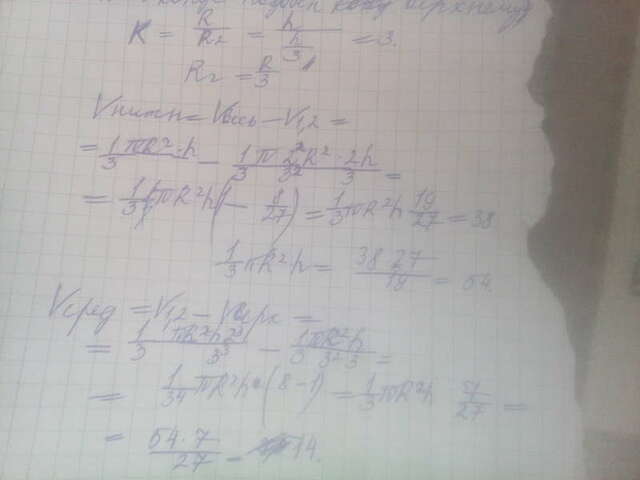 конус подобен конусу верхнему
K = R/R₂ = h/(h/3) = 3.
R₂ = R/3
Vнижн = Vвесь − V₁,₂ =
= 1/3 πR²·h − 1/3 π 2²R²/3² · 2h/3 =
= 1/3 πR²h (1 − 8/27) = 1/3 πR²h 19/27 = 38
1/3 πR²h = 38 27/19 = 54.
Vсред = V₁,₂ − Vверх =
= 1/3 πR²h 2³/3³ − 1/3 πR²h/3²·3 =
= 1/34 πR²h · (8 − 1) = 1/3 πR²h 7/27 =
= 54·7/27 = 14.